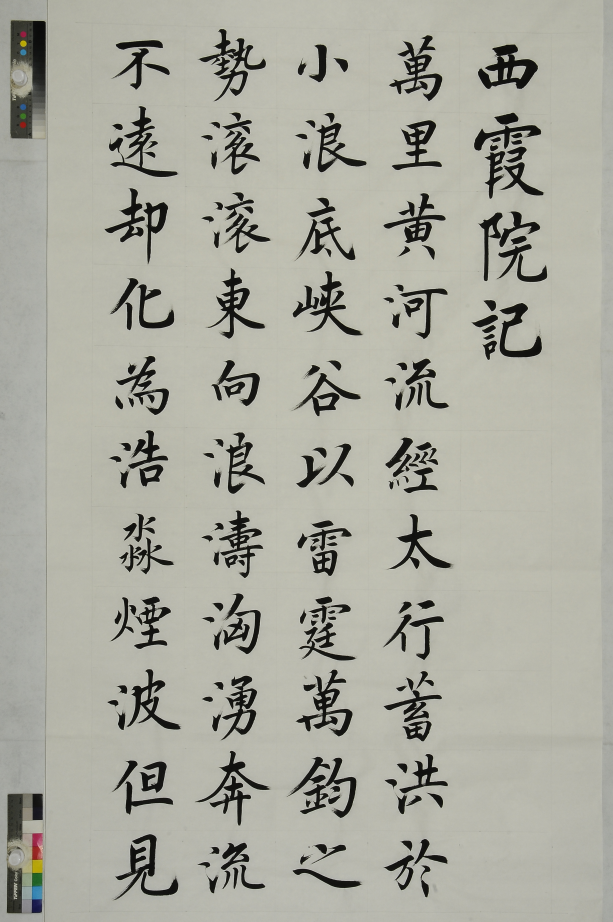 西霞院記
萬里黄河流經太行蓄洪於
小浪底峡谷以雷霆萬鈞之
勢滚滚東向浪濤洶湧奔流
不遠却化為浩淼煙波但見